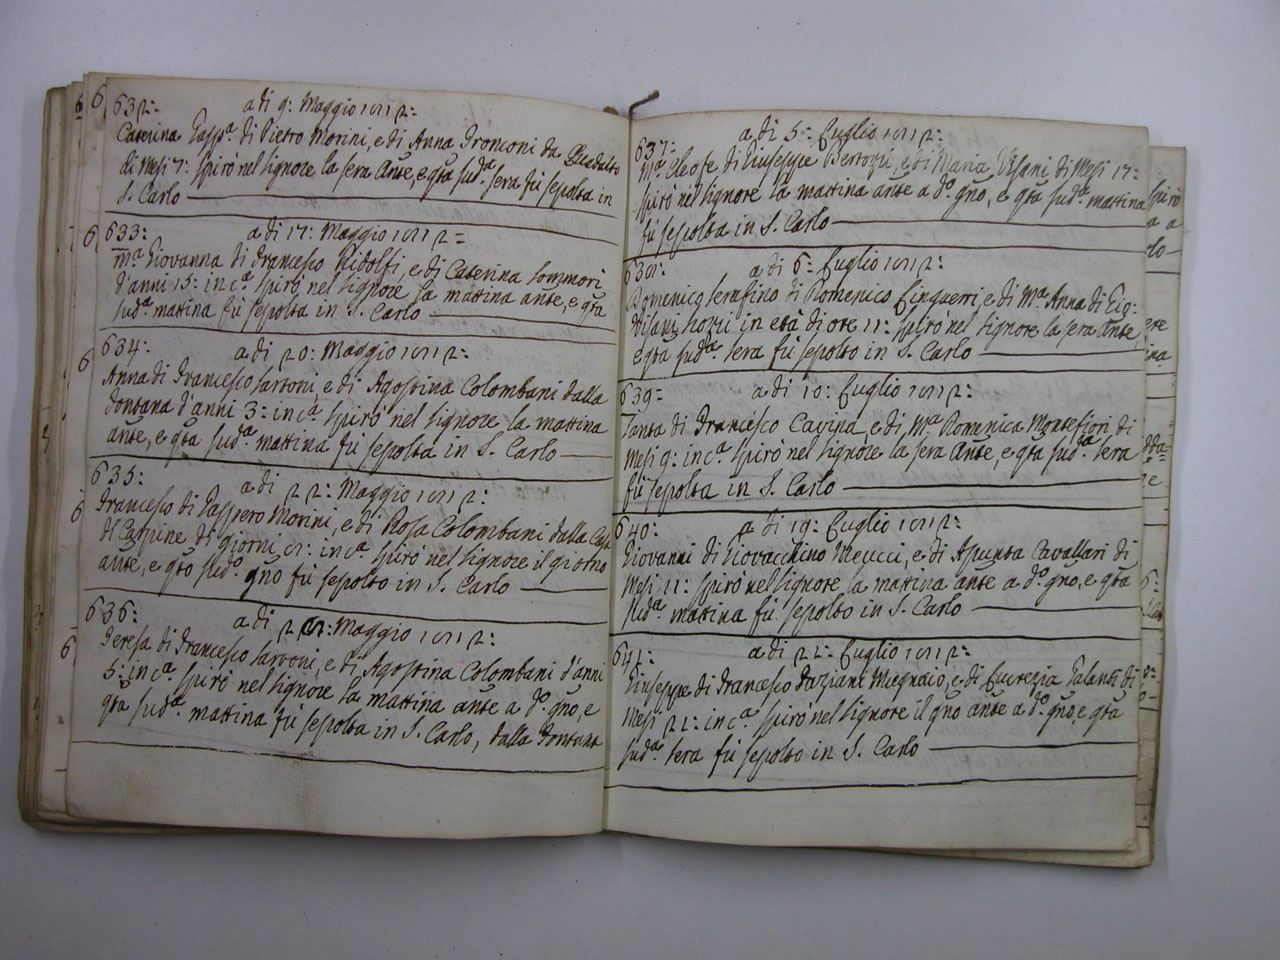 632:
a di 9: Maggio 1812:
Caterina Gasp.ª di Pietro Morini, e di Anna Fronconi da Quadalto
di Mesi 7: spirò nel Signore la sera ante, e qta sud.ª sera fù sepolta in
S. Carlo
633:
a di 17: Maggio 1812=
Mª Giovanna di Francesco Ridolfi, e di Caterina Sommori
d'anni 15: inc.ª spirò nel Signore la mattina ante, e qta
sud.ª mattina fù sepolta in S. Carlo
634:
a di 20: Maggio 1812:
Anna di Francesco Sartoni, e di Agostina Colombani dalla
Fontana d'anni 3: inc.ª spirò nel Signore la mattina
ante, e qta sud.ª mattina fù sepolta in S. Carlo
635:
a di 22: Maggio 1812:
Francesco di Gaspero Morini, e di Rosa Colombani dalla Casa
di giorni 8: inc.ª spirò nel Signore il giorno
ante, e qto sud.º gno fù sepolto in S. Carlo
636:
a di 28: Maggio 1812:
Teresa di Francesco Sartoni, e di Agostina Colombani d'anni
5: inc.ª spirò nel Signore la mattina ante a d.º gno, e
qta sud.ª mattina fù sepolta in S. Carlo, dalla Fontana
637:
a di 5: Luglio 1812:
Mª Cleofe di Giuseppe Bertozzi, e di Maria Visani di Mesi 17:
spirò nel Signore la mattina ante a d.º gno, e qta sud.ª mattina
fù sepolta in S. Carlo
638:
a di 6: Luglio 1812:
Domenico Serafino di Domenico Linguerri, e di Mª Anna di Gio:
Visani in età di ore 11: spirò nel Signore la sera ante,
e qta sud.ª sera fù sepolto in S. Carlo
639=
a di 10: Luglio 1812:
Santa di Francesco Cavina, e di Mª Domenica Montefiori di
Mesi 9: inc.ª spirò nel Signore la sera ante, e qta sud.ª sera
fù sepolta in S. Carlo
640:
a di 19: Luglio 1812:
Giovanni di Giovacchino Meucci, e di Assunta Cavallari di
Mesi 11: spirò nel Signore la mattina ante a d.º gno, e qta
sud.ª mattina fù sepolto in S. Carlo
641:
a di 21: Luglio 1812:
Giuseppe di Francesco Graziani Mugnaio, e di Lucrezia Galanti di
Mesi 21: inc.ª spirò nel Signore il gno ante a d.º gno, e qta
sud.ª sera fù sepolto in S. Carlo